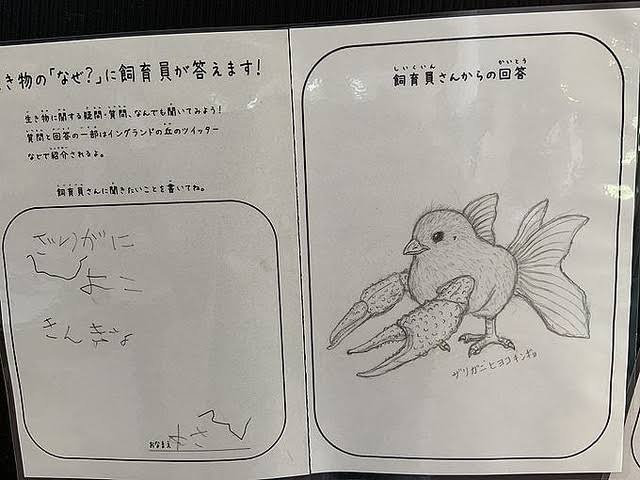 き物の「なぜ?」に飼育員が答えます!
生き物に関する疑問・質問、なんでも聞いてみよう!
質問と回答の一部はイングランドの丘のツイッター
などで紹介されるよ。
飼育員さんに聞きたいことを書いてね。
ざりがに
ひよこ
きんぎょ
おなまえ
飼育員さんからの回答
しいくいん かいとう
ザリガニヒヨコキンギョ